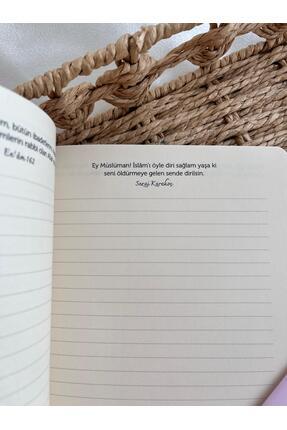 bütün ibadetlerim
rabbi olan
En'âm 162
Ey Müslüman! İslâm'ı öyle diri sağlam yaşa ki
seni öldürmeye gelen sende dirilsin.
Sezai Karakoç